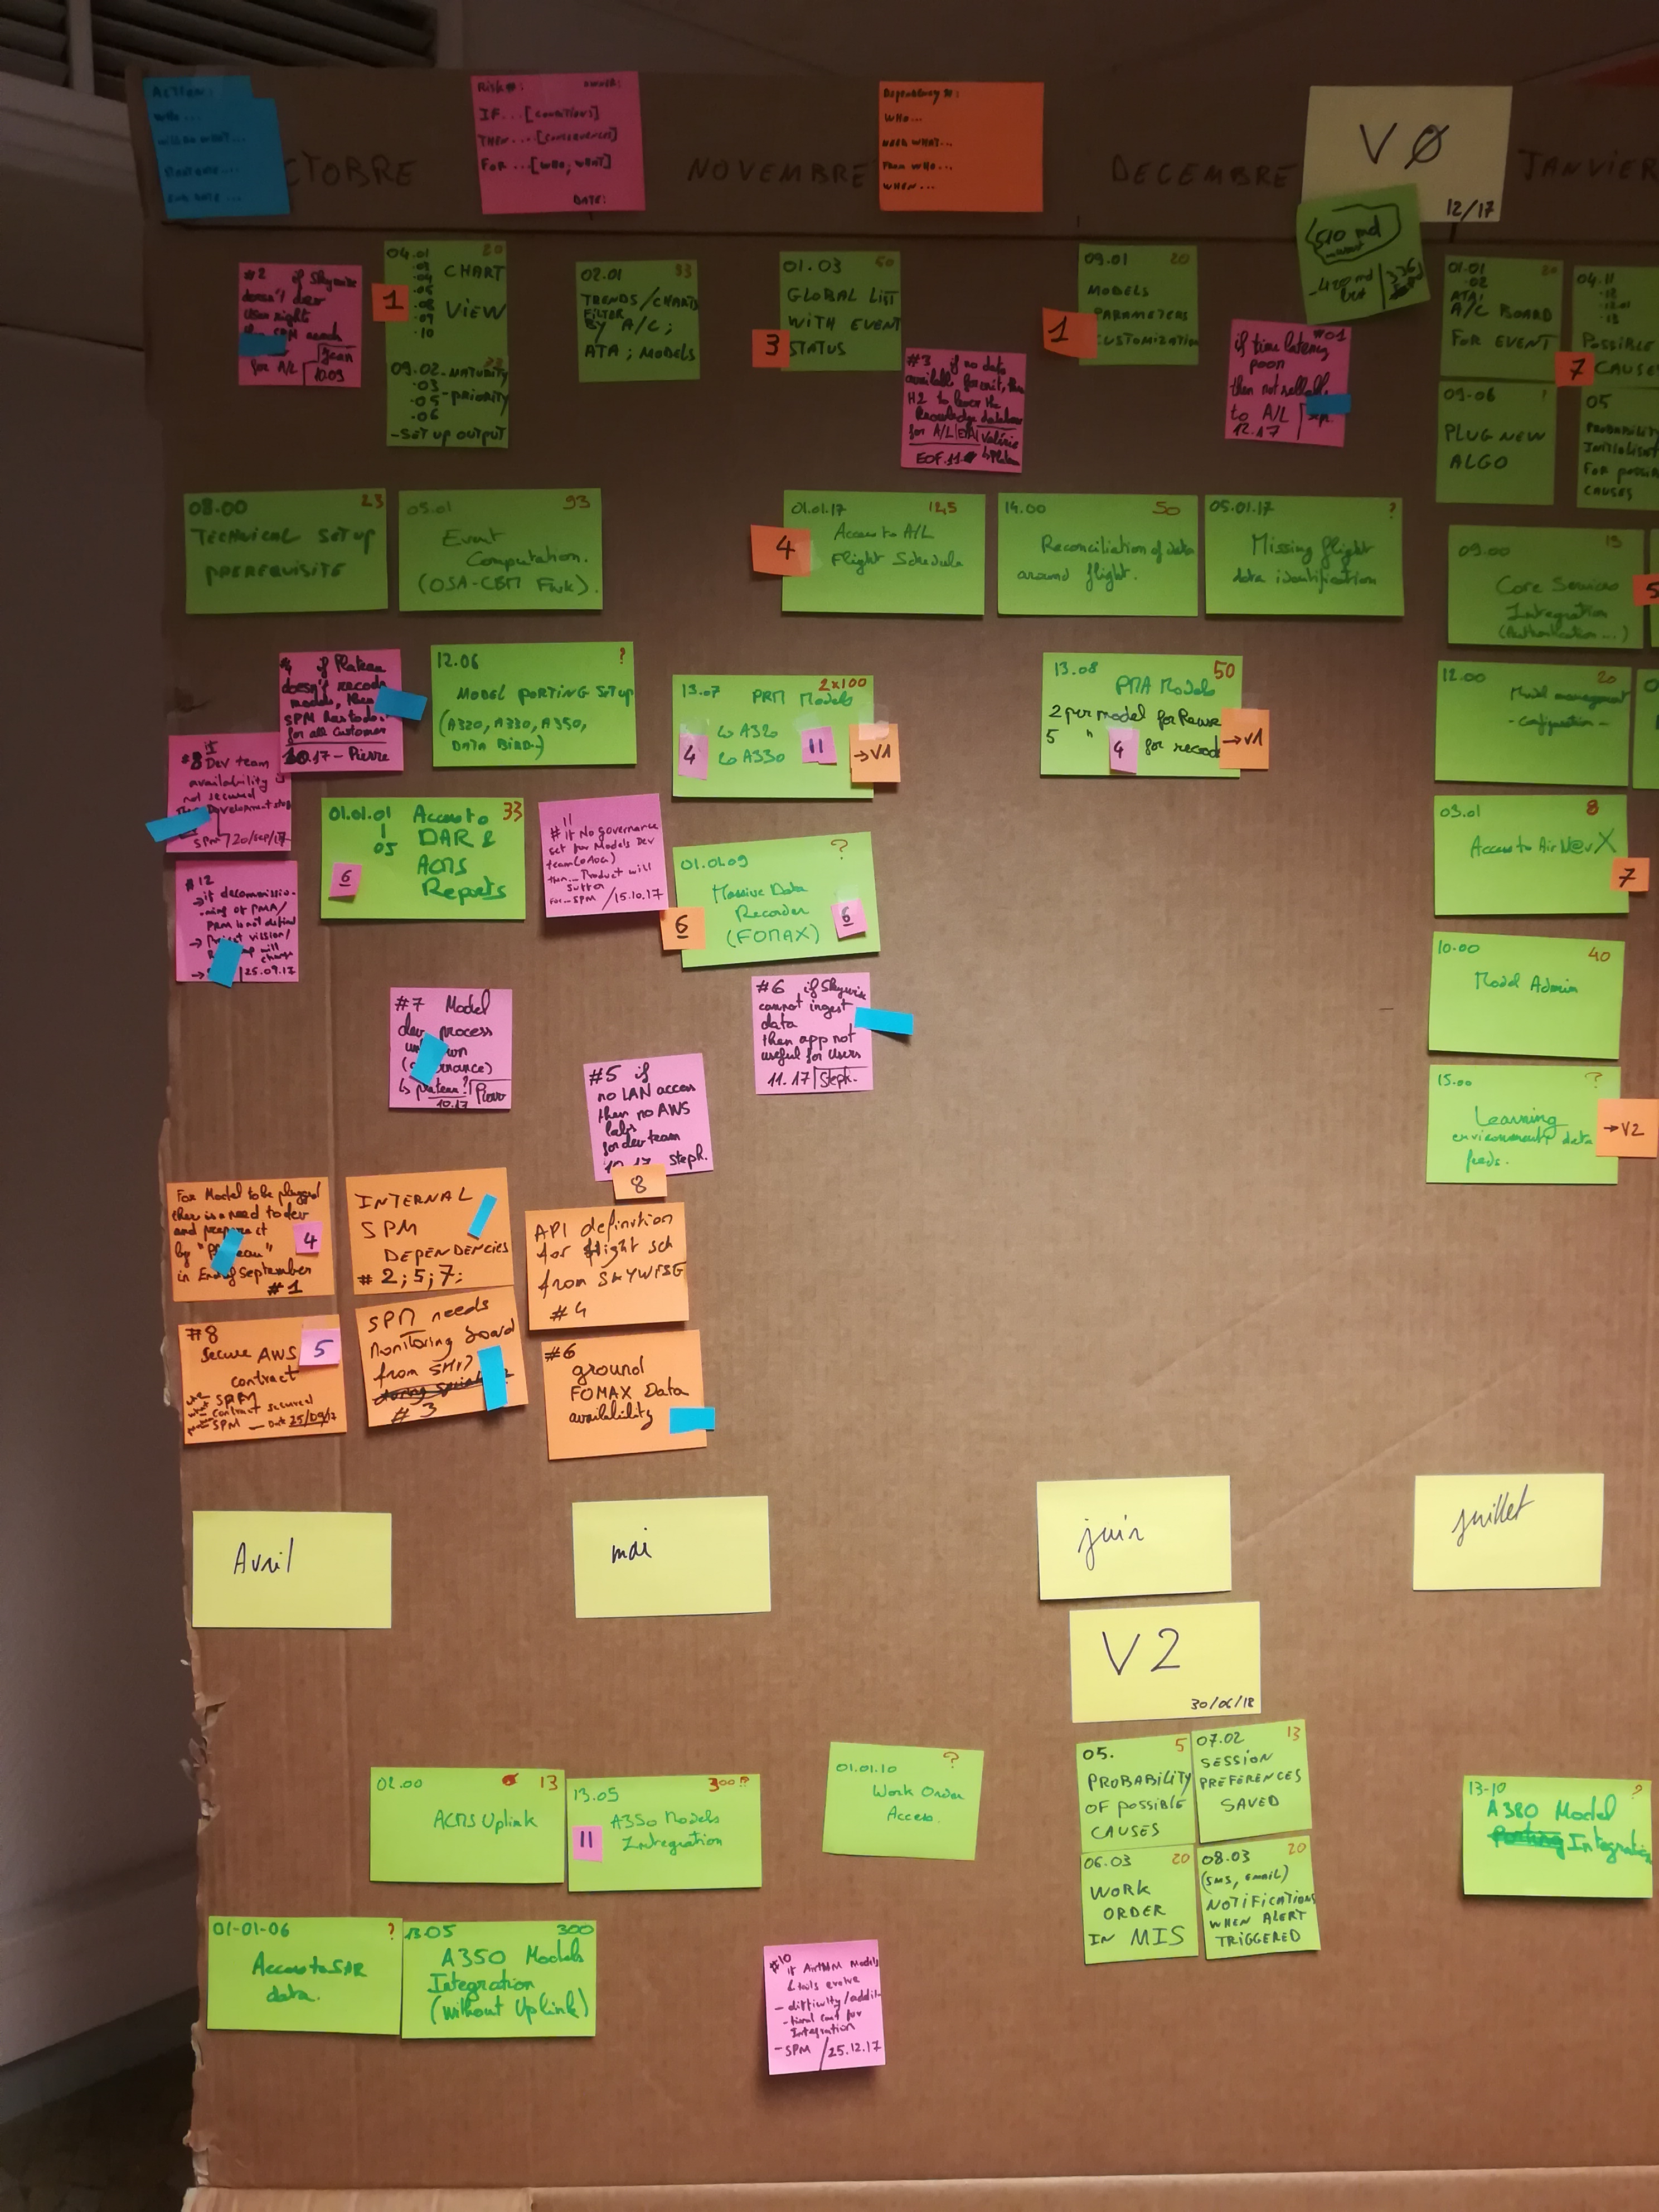 ACTION:
WHO...
START DATE...
END DATE...
CTOBRE
Risk #: OWNER:
IF...[CONDITIONS]
THEN...[CONSEQUENCES]
FOR...[WHO, WHAT]
DATE:
NOVEMBRE
Dependency #:
WHO...
NEED WHAT...
FROM WHO...
WHEN...
DECEMBRE
VØ
12/17
JANVIER
510 md
#2 if Skywise
doesn't dev
User rights
for A/L
10.09
1
04.01 20
CHART
VIEW
.08
.09
.10
09.02 - MATURITY
.03
.05 - PRIORITY
.06
- SET UP OUTPUT
02.01 33
TRENDS/CHARTS
FILTER
BY A/C;
ATA; MODELS
01.03 50
GLOBAL LIST
WITH EVENT
STATUS
3
#3 if no data
available for
H2 to have the
Knowledge database
for A/L Valérie
EOF.11
09.01 20
MODELS
PARAMETERS
CUSTOMIZATION
1
#01
if time latency
poor
then not reliable
to A/L
12.17
01.01 20
.02
ATA/
A/C BOARD
FOR EVENT
04.11
POSSIBLE
CAUSE
7
09-06 ?
PLUG NEW
ALGO
05
PROBABILITY
FOR POSSIB
CAUSES
08.00 23
TECHNICAL SET UP
PREREQUISITE
05.01 93
Event
Computation.
(OSA-CBM Fwk).
4
01.01.17 12,5
Access to A/L
Flight Schedule
14.00 50
Reconciliation of data
around flight.
05.01.17 ?
Missing flight
data identification
09.00 13
Core Services
Integration
(Authentication...)
5
if Plateau
doesn't recode
models, then
SPM has to do
for all Customer
10.17 - Pierre
12.06 ?
MODEL PORTING SET UP
(A320, A330, A350,
13.07 2x100
PRM Models
↳ A320
↳ A330
4
11
→V1
13.08 50
PMA Models
2 per model for Reuse
5 " for recode
4
→V1
12.00 20
Model management
- configuration -
if
#8 Dev team
availability is
not secured
Development stop
SPM / 20/sep/17
01.01.01 33
05
Access to
DAR &
ACMS
Reports
6
#11
if No governance
set for Models Dev
team
then... Product will
suffer
For... SPM / 15.10.17
01.01.09 ?
Massive Data
Recorder
(FOMAX)
6
6
03.01 8
Access to AirN@vX
7
#12
→ if decommissio-
-ning of PMA/
PRM is not defined
→ Project vision/
change
25.09.17
10.00 40
Model Admin
#7 Model
dev process
unknown
(governance)
↳ plateau?
10.17
#6 if Skywise
cannot ingest
data
then app not
useful for Users
11.17 Steph.
15.00 ?
Learning
environment data
feeds.
→V2
#5 if
no LAN access
then no AWS
labs
for dev team
10.17 Steph.
8
For Model to be plugged
ther is a need to dev
by "Plateau"
in End of September
#1
4
INTERNAL
SPM
DEPENDENCIES
# 2; 5; 7;
API definition
for flight sch
from SKYWISE
#4
#8
Secure AWS
contract
5
SPM
contract secured
SPM - Date 25/09/17
SPM needs
Monitoring board
from
#3
#6
ground
FOMAX Data
availability
Avril
mai
juin
juillet
V2
30/06/18
02.00 13
ACMS Uplink
13.05 300?
A350 Models
Integration
11
01.01.10 ?
Work Order
Access.
05. 5
PROBABILITY
OF POSSIBLE
CAUSES
07.02 13
SESSION
PREFERENCES
SAVED
06.03 20
WORK
ORDER
IN MIS
08.03 20
(SMS, EMAIL)
NOTIFICATIONS
WHEN ALERT
TRIGGERED
13-10 ?
A380 Model
Integration
01-01-06 ?
Access to SAR
data.
13.05 300
A350 Models
Integration
(without Uplink)
#10
if AirTHM Models
& tails evolve
- difficulty/addi-
-tional cost for
Integration
- SPM / 25.12.17